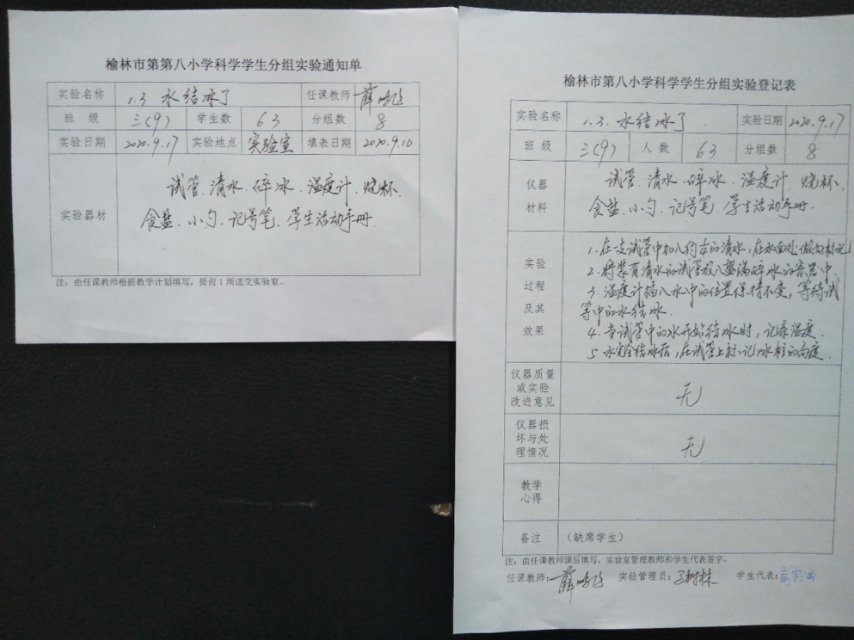 榆林市第第八小学科学学生分组实验通知单
实验名称 1.3 水结冰了 任课教师 薛
班 级 三(9) 学生数 63 分组数 8
实验日期 2020.9.17 实验地点 实验室 填表日期 2020.9.10
实验器材 试管、清水、碎冰、温度计、烧杯、
食盐、小勺、记号笔、学生活动手册.
注：由任课教师根据教学计划填写，提前1周送交实验室。
榆林市第八小学科学学生分组实验登记表
实验名称 1.3. 水结冰了 实验日期 2020.9.17
班 级 三(9) 人 数 63 分组数 8
仪器材料 试管、清水、碎冰、温度计、烧杯、
食盐、小勺、记号笔、学生活动手册.
实验过程及其效果
1. 在支试管中加入约 的清水,在水面处做好标记
2. 将装有清水的试管放入盛满碎冰的 中.
3. 温度计插入水中的位置保持不变,等待试
管中的水结冰.
4. 当试管中的水开始结冰时,记录温度.
5. 水完全结冰后,在试管上标记冰柱的高度.
仪器质量或实验改进意见 无
仪器损坏与处理情况 无
教学心得
备注 （缺席学生）
注：由任课教师课后填写，实验室管理教师和学生代表签字。
任课教师：薛 实验管理员： 学生代表：